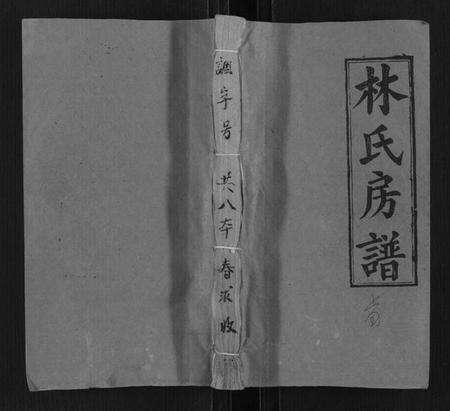 林氏房譜
字号 共八本 春求收